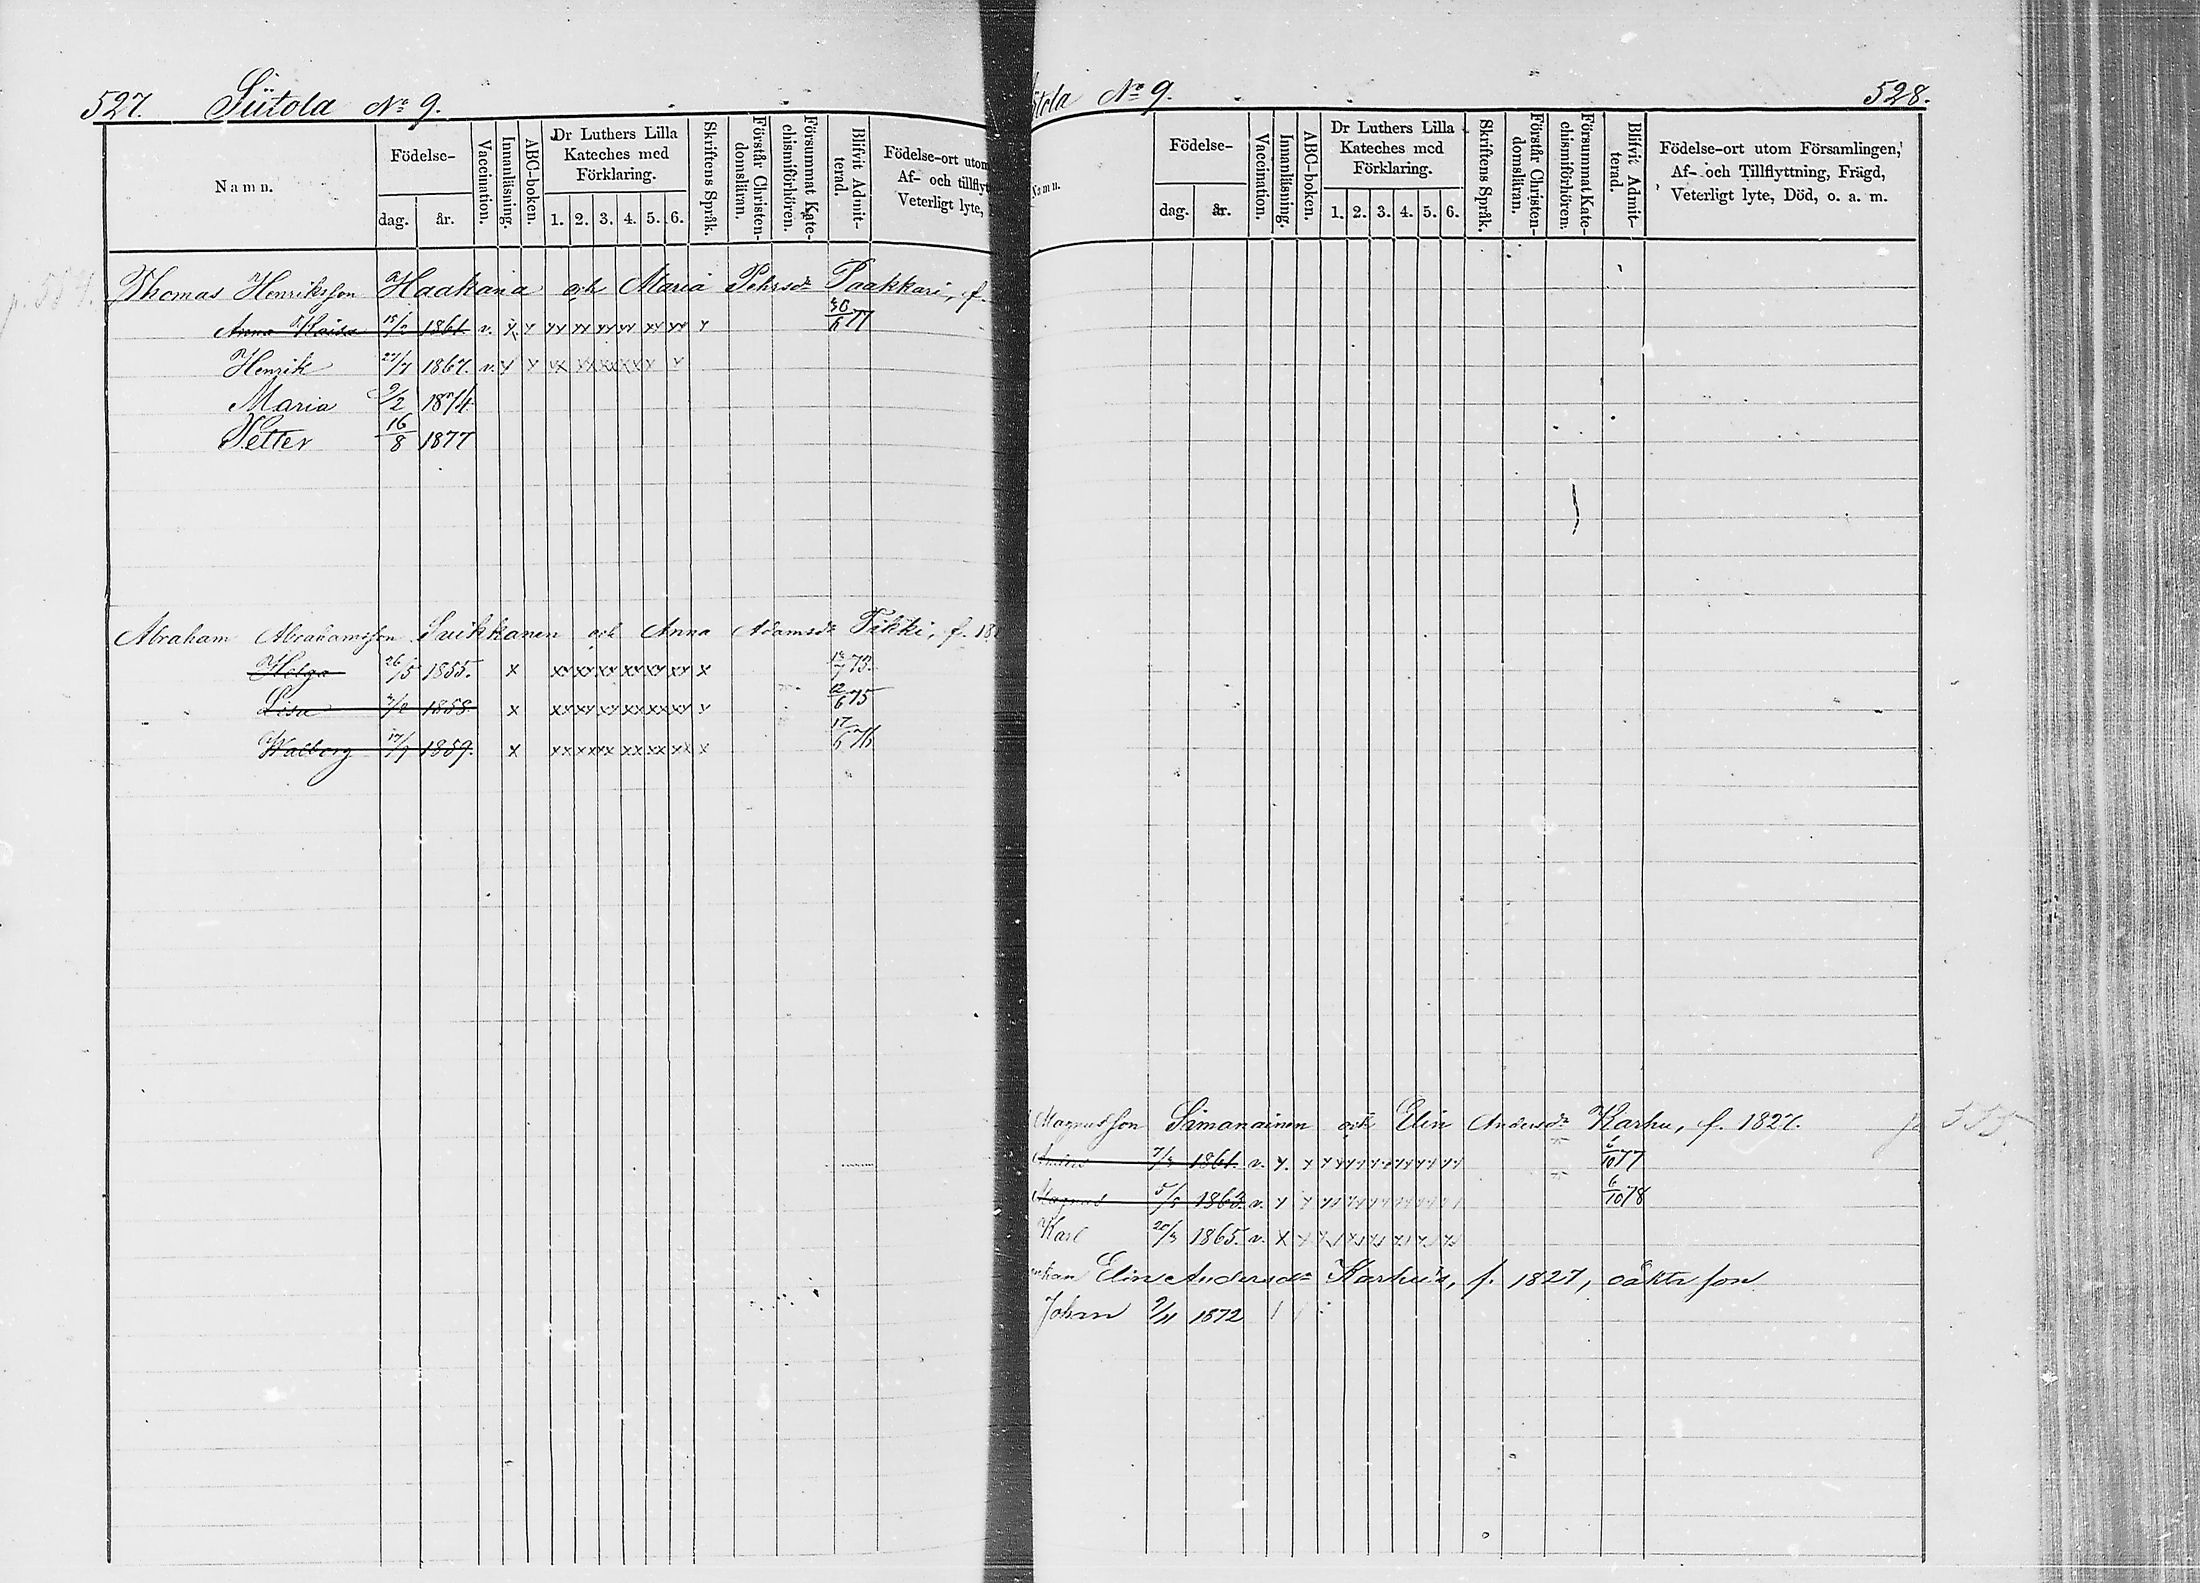 527. Siitola No 9.
Namn.
Födelse-
dag. år.
Vaccination.
Innanläsning.
ABC-boken.
Dr Luthers Lilla
Kateches med
Förklaring.
1. 2. 3. 4. 5. 6.
Skriftens Språk.
Förstår Christen-
domsläran.
Försummat Kate-
chismiförhören.
Blifvit Admit-
terad.
Födelse-ort utom
Af- och tillflyt
Veterligt lyte,
Thomas Henriksson Haakana och Maria Pehrsdr Paakkari, f.
Anna Kaisa 1861. v. x x xx xx xx xx xx xx x 30/6 77
Henrik 27/7 1867. v. x x xx xx xx xx x x
Maria 9/2 1874
Petter 16/8 1877
Abraham Abrahamsson Suikkanen och Anna Adamsdr Tikki, f. 18
Helga 26/5 1855. x xx xx xx xx xx xx x 73.
Lisa 1858. x xx xx xx xx xx xx x 12/6 75
Walborg 1859. x xx xx xx xx xx xx x 17/6 76
tola No 9. 528.
Namn.
Födelse-
dag. år.
Vaccination.
Innanläsning.
ABC-boken.
Dr Luthers Lilla
Kateches med
Förklaring.
1. 2. 3. 4. 5. 6.
Skriftens Språk.
Förstår Christen-
domsläran.
Försummat Kate-
chismiförhören.
Blifvit Admit-
terad.
Födelse-ort utom Församlingen,
Af- och Tillflyttning, Frägd,
Veterligt lyte, Död, o. a. m.
Magnusson Simanainen och Elin Andersdr Karhu, f. 1827.
1861. v. x. x xx xx xx xx xx xx 77
Magnus 1863. v. x x xx xx xx xx xx 6/10 78
Karl 20/3 1865. v. x x xx xx xx xx xx
enkan Elin Andersdr Karhu's, f. 1827, oäkta son
Johan 9/11 1872